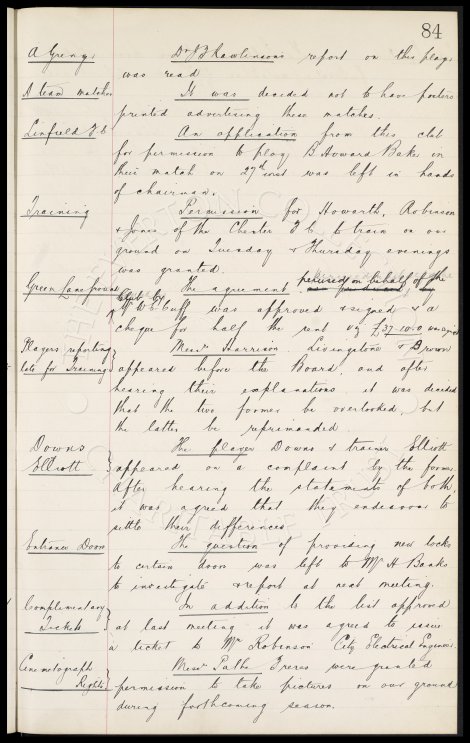 84
A Grenyer Dr J B Rawlinson's report on this player
was read
A team matches It was decided not to have posters
printed advertising these matches.
Linfield F.C. An application from this club
for permission to play B Howard Baker in
their match on 27th inst was left in hands
of chairman.
Training Permission for Howarth, Robinson
& Jones of the Chester F.C. to train on our
ground on Tuesday & Thursday evenings
was granted.
Green Lane ground The agreement
Mr W C Cuff was approved & signed & a
cheque for half the rent viz £37-10-0
Players reporting Messrs Harrison, Livingstone & Brown
late for Training appeared before the Board and after
hearing their explanations it was decided
that the two former be overlooked, but
the latter be reprimanded.
Downs The player Downs & trainer Elliott
Elliott appeared on a complaint by the former
After hearing the statements of both,
it was agreed that they endeavour to
settle their differences.
Entrance Doors The question of providing new locks
to certain doors was left to Mr H Banks
to investigate & report at next meeting.
Complimentary In addition to the list approved
Tickets at last meeting it was agreed to issue
a ticket to Mr Robinson City Electrical Engineer.
Cinematograph Messrs Pathe Freres were granted
Rights permission to take pictures on our ground
during forthcoming season.